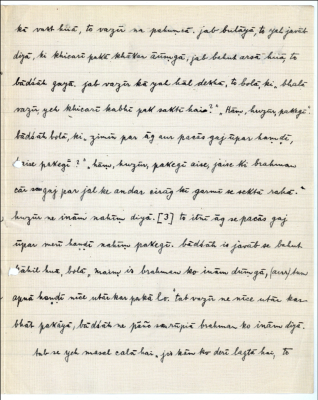 kā vaqt huā, to vazīr na pahuncā. jab bulāyā, to yeh javāb
diyā, ki khicaṛī pakā khākar āūmgā, jab bahut arsā huā, to
bādšāh gayā. jab vazīr kā yah hāl dekhā, to bolā, ki „bhalā
vazīr, yeh khicaṛī kabhī pak saktā hai?" „Hāṃ, huzūr, pakegī".
bādšāh bolā, ki „zimīn par āg aur pacās gaj ūpar haṇḍī,
kaise pakegī?" „hāṃ, huzūr, pakegī aise, jaise ki brahman
cār sau gaj par jal ke andar cirāg kī garmī se sektā rahā."
huzūr ne inām nahīṃ diyā. [3] to itnī āg se pacās gaj
ūpar merī haṇḍī nahīṃ pakegī. bādšāh is javāb se bahut
kāhil hua, bolā, „maiṃ is brahman ko inām dūmgā, (aur) tum
apnā haṇḍī nīce utār kar pakā lo." tab vazīr ne nīce utār kar
bhāt pakāyā, bādšāh ne pāṃc sau rūpiā brahman ko inām diyā.
tab se yeh masal calā hai. „jis kām ko derī lagtā hai, to